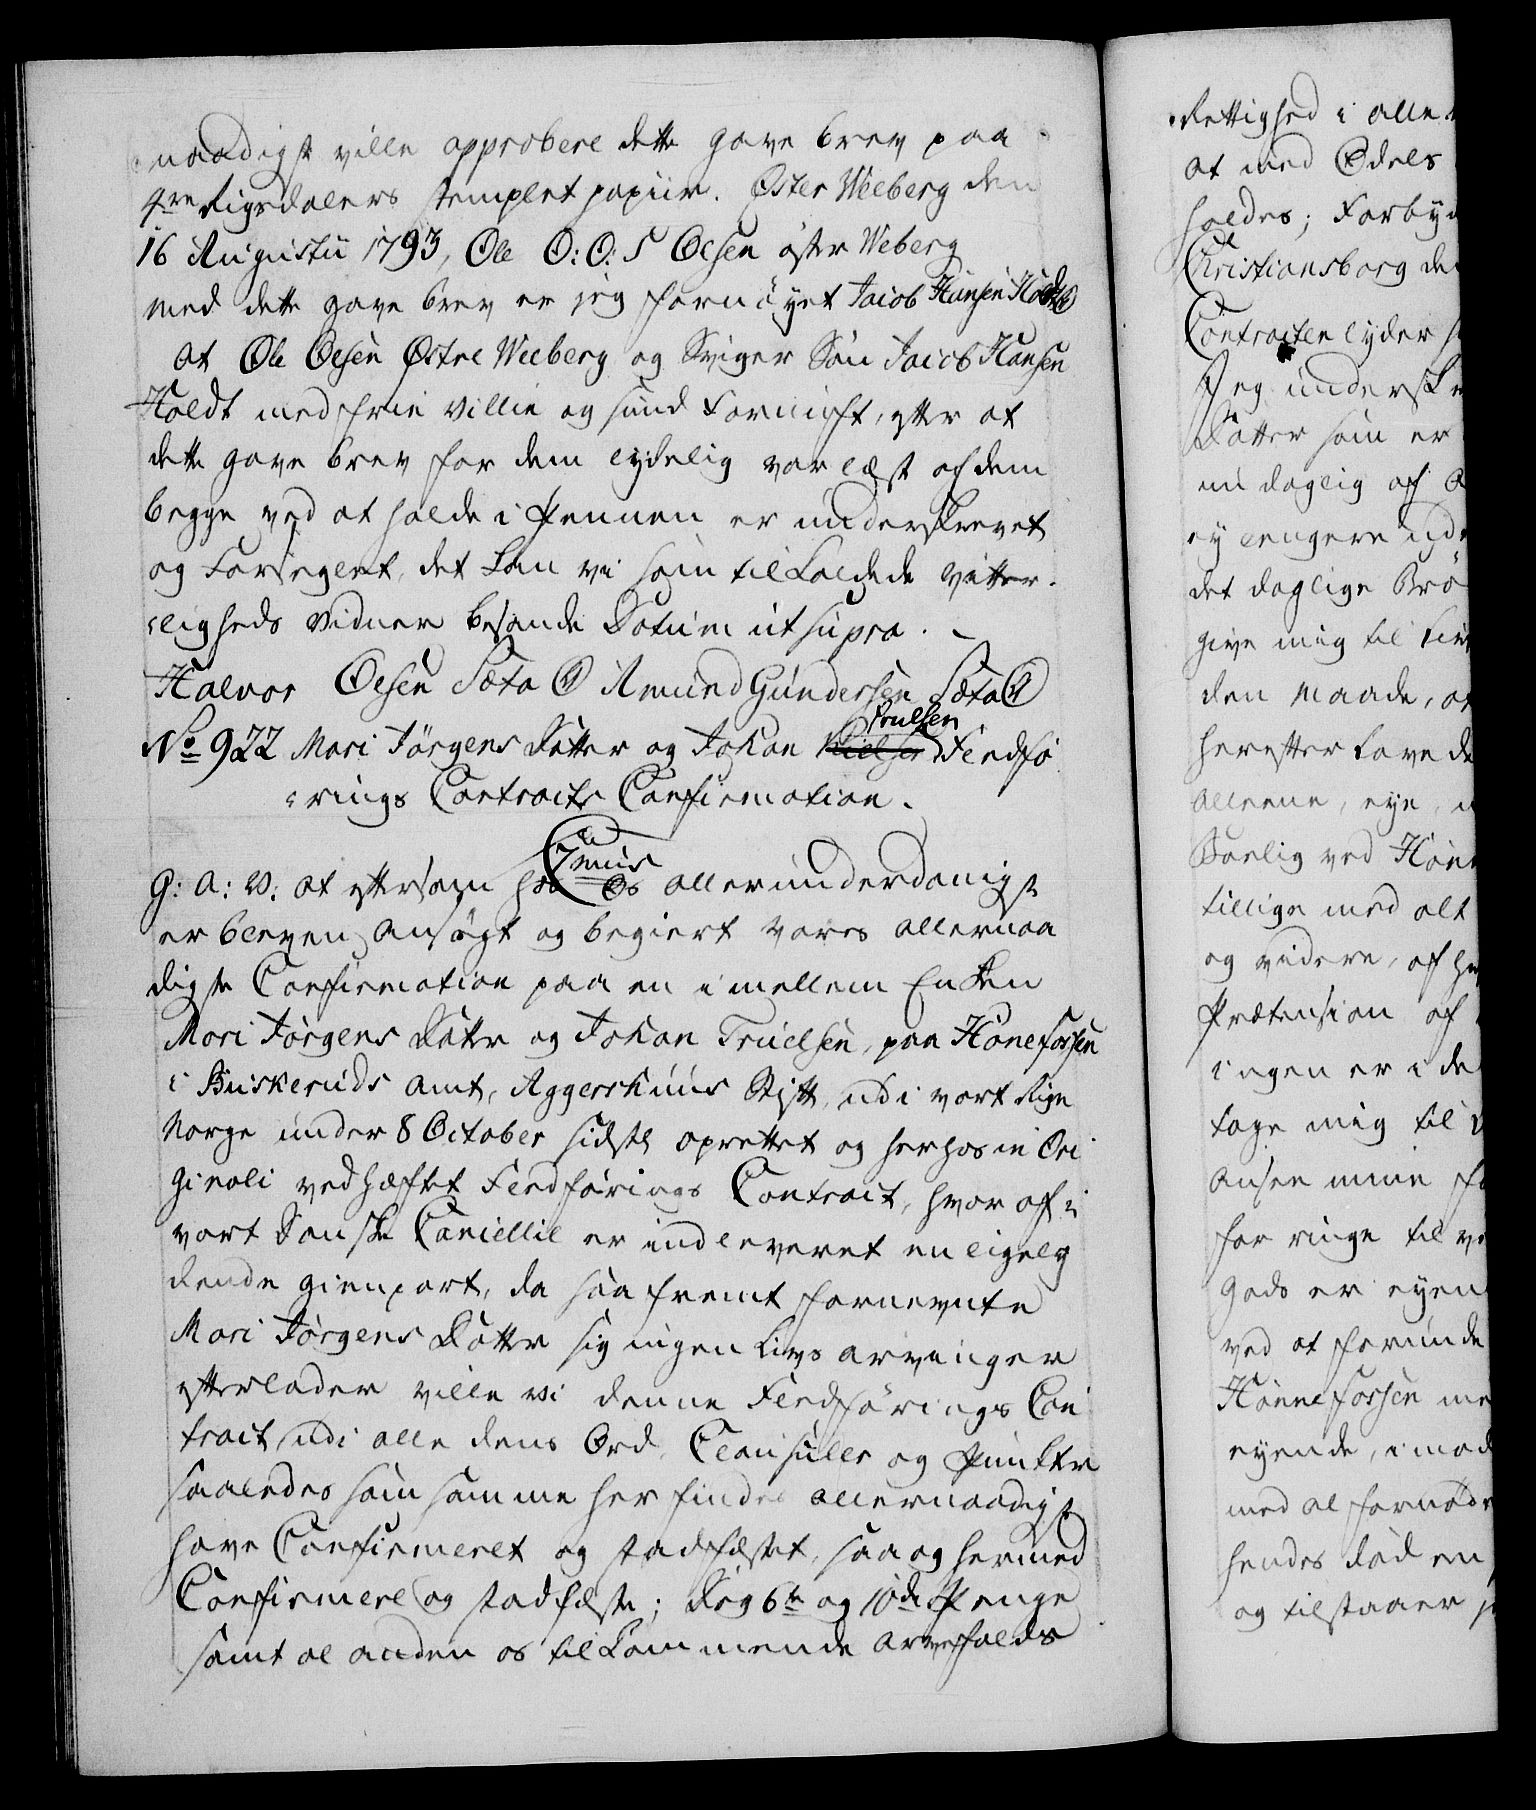 naadigst ville approbere dette gave brev paa
4re Rigsdalers stemplet papiir. Øster Weeberg den
16 Augustii 1793, Ole O: O: S Olsen øster Weberg
med dette gave brev er jeg fornöyet Jacob Hansen Holdt
at Ole Olsen Østre Weeberg og Sviger Søn Jacob Hansen
Holdt med frie villie og sund Fornuft, efter at
dette gave brev for dem lydelig var læst af dem
begge ved at holde i Pennen er underskrevet
og Forseglet, det kan vi som tilkaldede vitter-
ligheds vidner besande Datum ut supra.
Halvor Olsen Sæta Amund Gundersen Sæta
No 922 Mari Jörgens Datter og Johan Trulsen Fledfö
rings Contracts Confirmation.
7mus
G: A: V: at eftersom hos Os allerunderdanigst
er bleven ansøgt og begiert vores allernaa
digste Confirmation paa en imellem Enken
Mari Jörgens Datter og Johan Truelsen, paa Hönefossen
i Buskeruds Amt, Aggershuus Stift, udi vort Rige
Norge under 8 October sidste oprettet og herhos in Ori
ginali vedhæftet Fledförings Contract, hvor af i
vort Danske Cancellie er indleveret en ligely
dende gienpart, da saafremt fornevnte
Mari Jörgens Datter sig ingen Livs arvinger
efterlader ville vi denne Fledförings Con
tract, udi alle dens Ord, Clausuler og Puncter
saaledes som samme her findes allernaadigst
have Confirmeret og stadfæstet, saa og hermed
Confirmere og stadfæste; Dog 6te og 10de Penge
samt al anden os tilkommende arvefalds
Rettighed i alle
at med Odels
holdes; Forbyd
Christiansborg de
Contracten lyder
Jeg underskr
Datter som er
nu daglig af
ey lengere ud
det daglige Brö
give mig til
den Maade, at
herefter have de
alleene, eye,
Boelig ved Hön
tillige med alt
og videre, af
Prætension af
ingen er i de
tage mig til
ansee mine
for ringe til
Gods er eyen
ved at forunde
Hönnefossen me
eyende, imod
med al fornöde
hendes död en
og tilstaaer